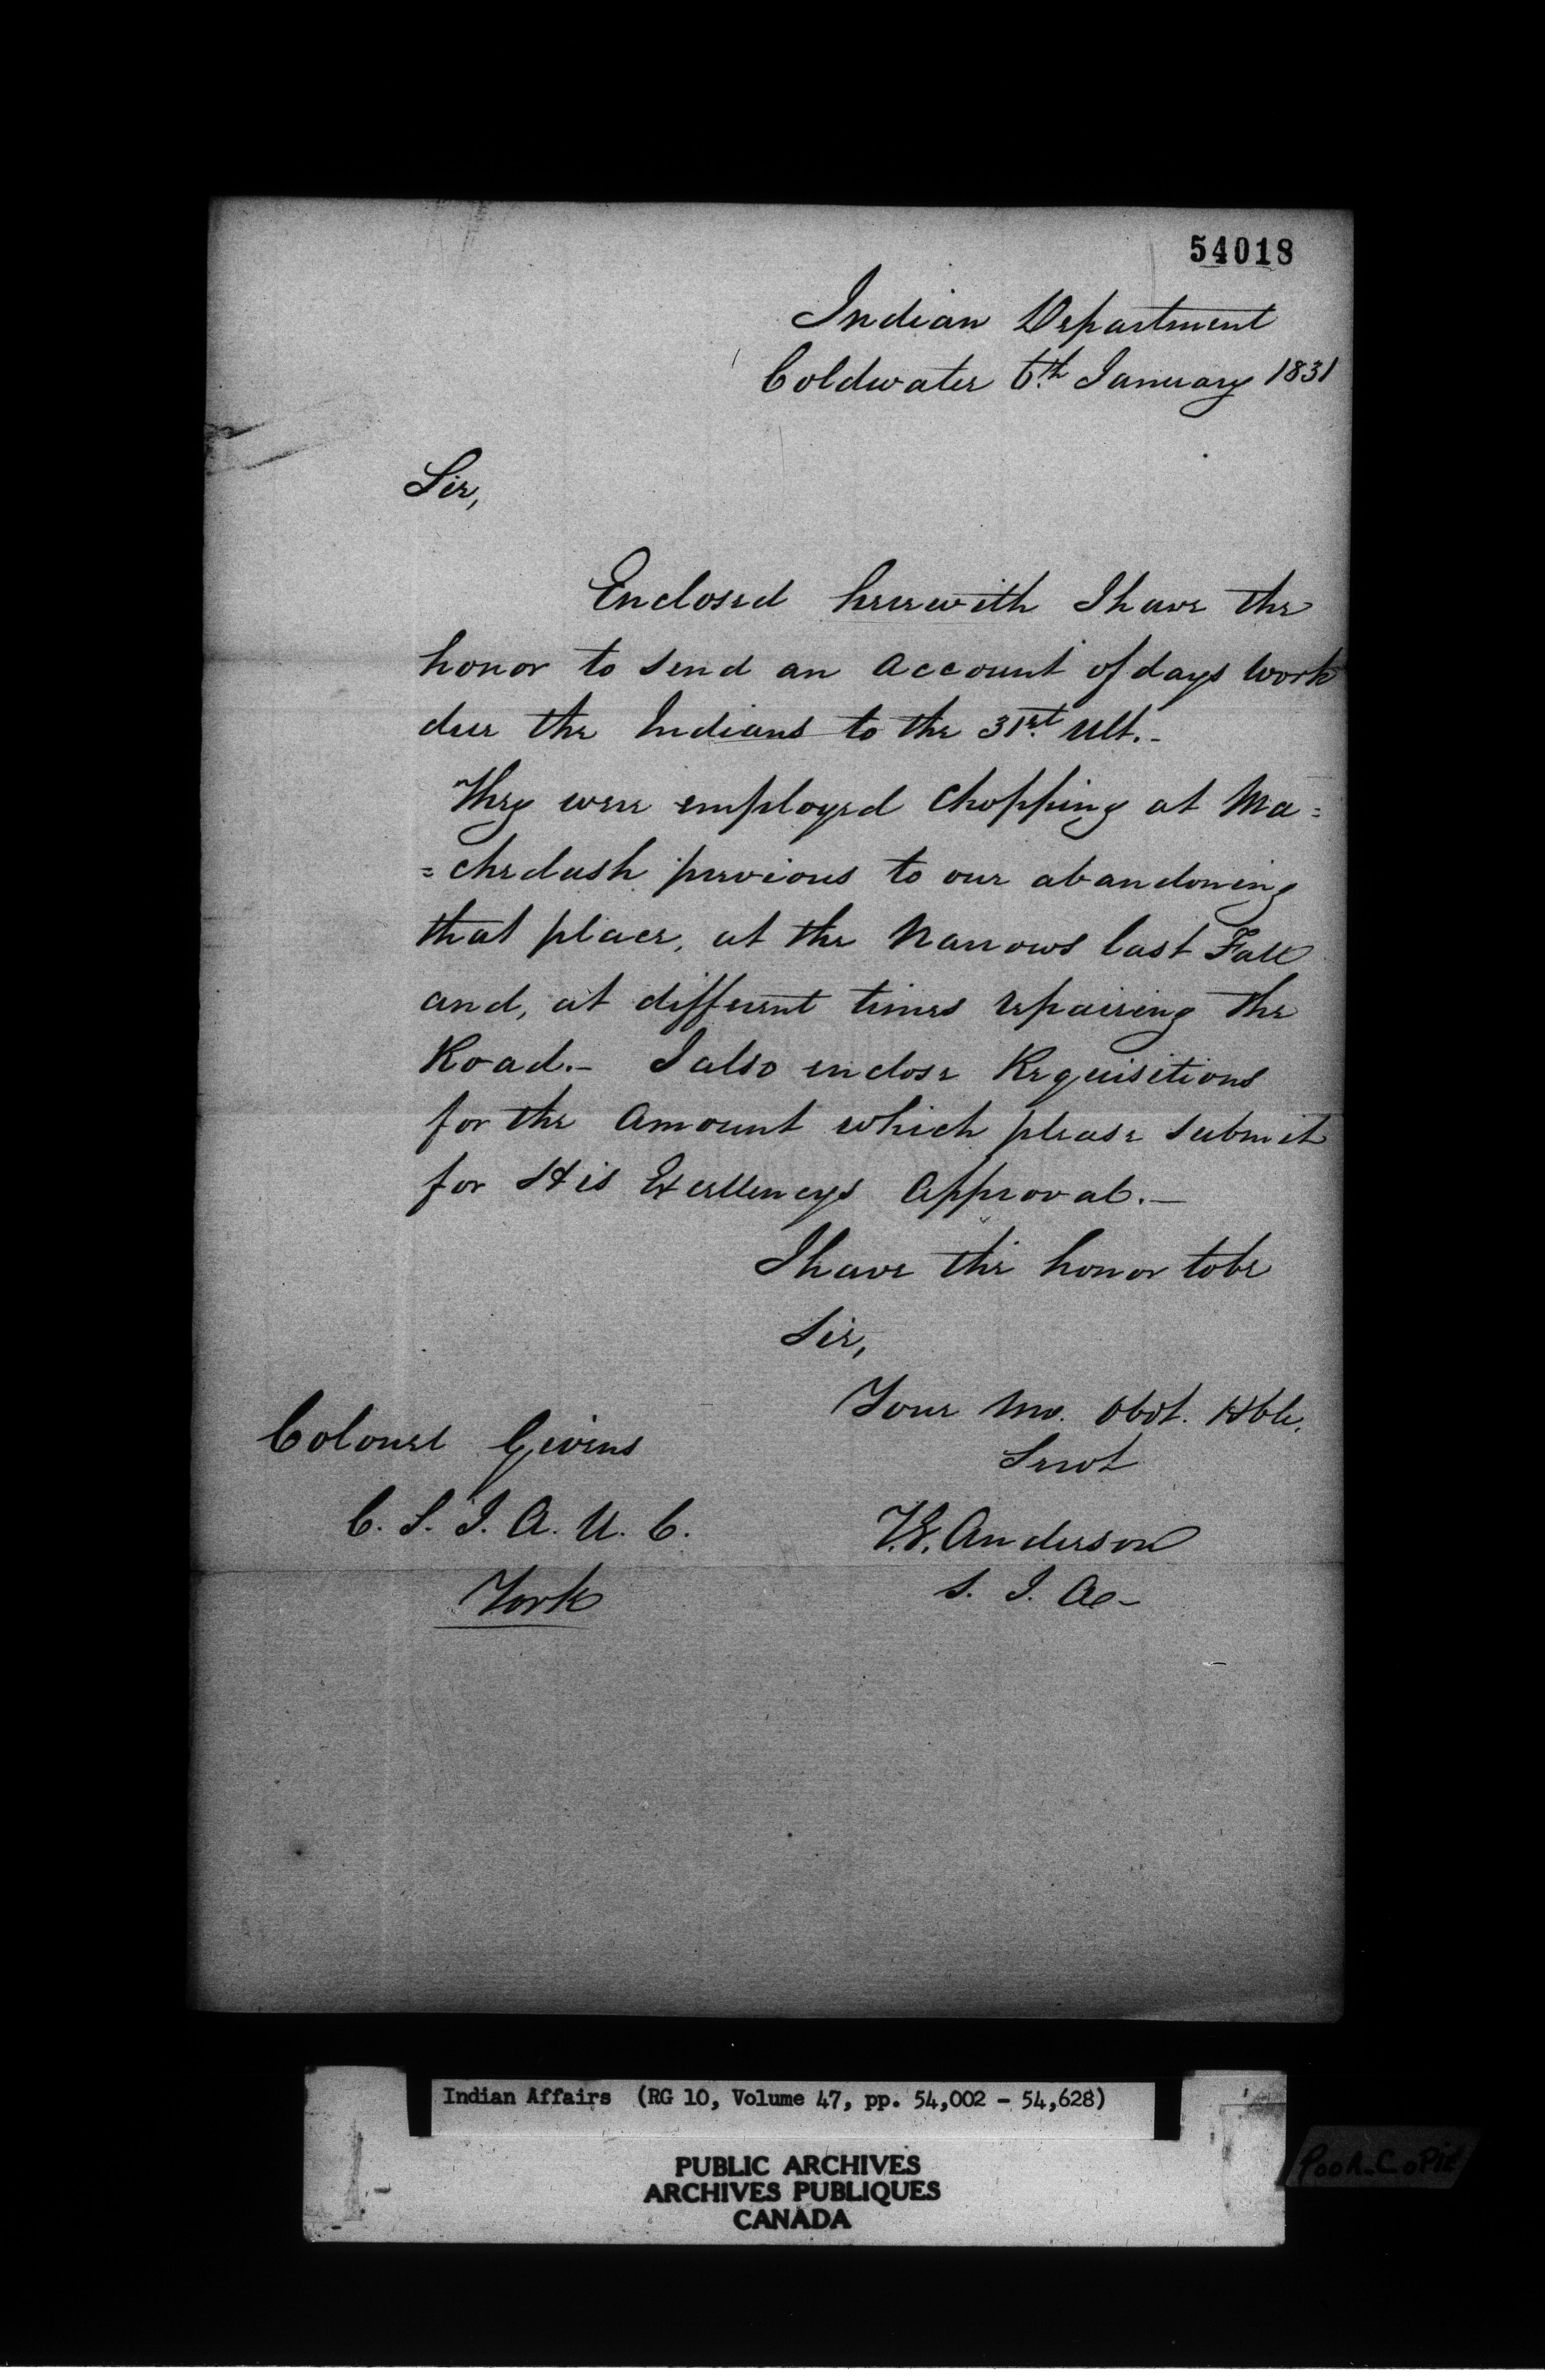 54018
Indian Department
Coldwater 6th. January 1831
Sir,
Enclosed herewith I have the
honor to send an Account of days work
due the Indians to the 31st. Ult.-
They were employed Chopping at Ma=
=chedash previous to our abandoning
that place, at the Narrows last Fall
and, at different times repairing the
Road.- I also enclose Requisitions
for the Amount which please submit
for His Excellencys Approval.-
I have the honor to be
Sir,
Your Mo. Obdt. Hble.
Servt
Colonel Givins
C. S. I. A. U. C.
York
T.G. Anderson
S. I. A-
Indian Affairs (RG 10, Volume 47, pp. 54,002 - 54,628)
PUBLIC ARCHIVES
ARCHIVES PUBLIQUES
CANADA
POOR COPIE